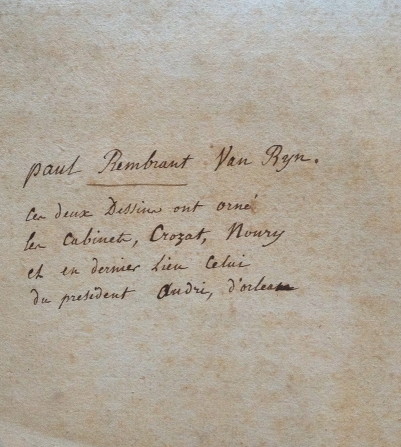 paul Rembrant Van Ryn.
Ces deux Dessins ont orné
les Cabinets, Crozat, Noury
et en dernier lieu Celui
du président andri, d'orleans